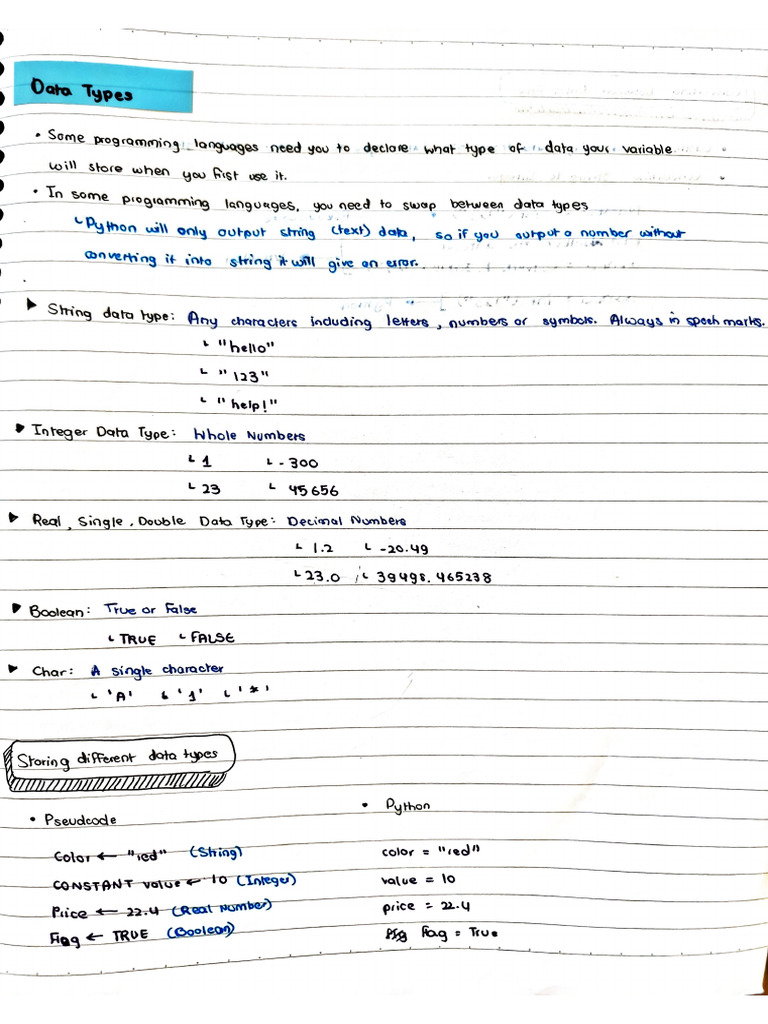 Data Types
• Some programming languages need you to declare what type of data your variable
will store when you first use it.
• In some programming languages, you need to swap between data types
↳ Python will only output string (text) data, so if you output a number without
converting it into string it will give an error.
▶ String data type: Any characters including letters, numbers or symbols. Always in speech marks.
↳ "hello"
↳ "123"
↳ "help!"
▶ Integer Data Type: Whole Numbers
↳ 1 ↳ -300
↳ 23 ↳ 45656
▶ Real, Single, Double Data Type: Decimal Numbers
↳ 1.2 ↳ -20.49
↳ 23.0 ↳ 39498.465238
▶ Boolean: True or False
↳ TRUE ↳ FALSE
▶ Char: A single character
↳ 'A' ↳ '1' ↳ '*'
Storing different data types
• Pseudcode
Color ← "red" (String)
CONSTANT value ← 10 (Integer)
Price ← 22.4 (Real Number)
Flag ← TRUE (Boolean)
• Python
color = "red"
value = 10
price = 22.4
Flag = True